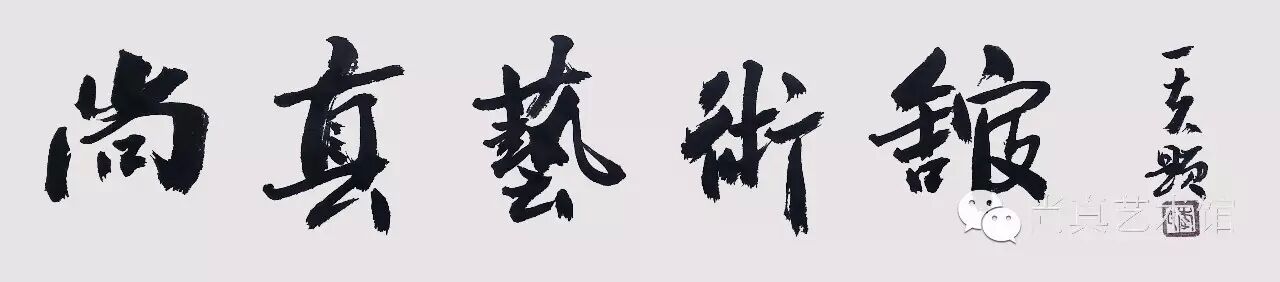 尚真藝術舘
一夫題
尚真艺术馆